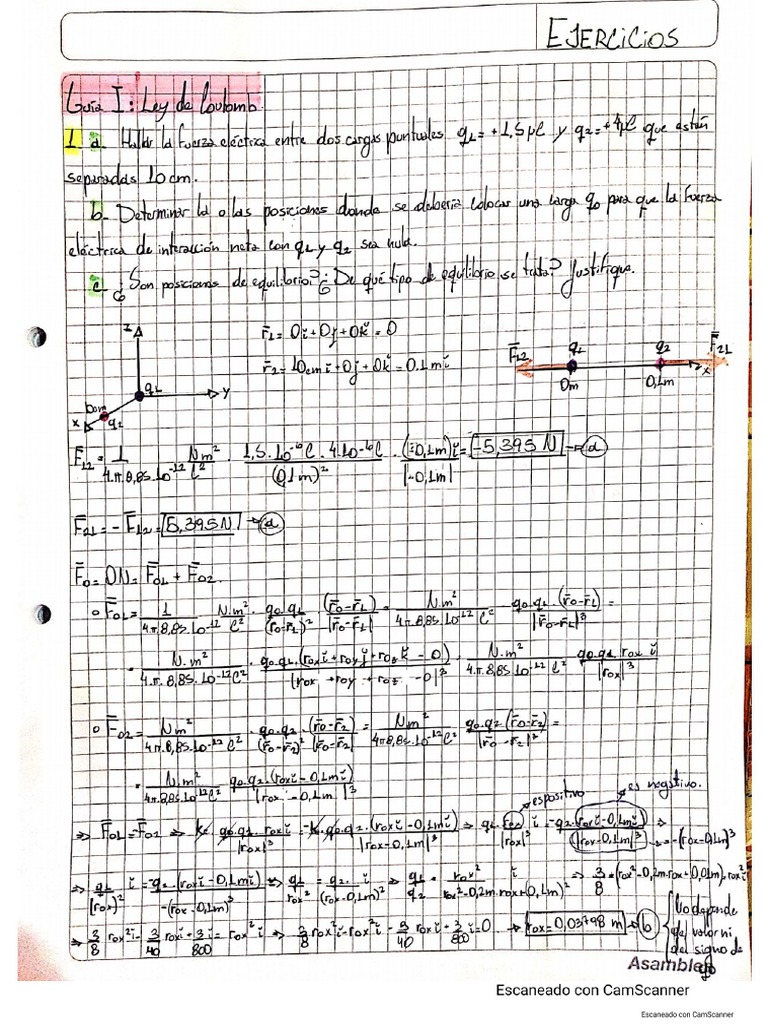 EJERCICIOS
Guía I: Ley de Coulomb.
1 a- Hallar la fuerza eléctrica entre dos cargas puntuales q1=+1,5μC y q2=+4μC que están
separadas 10cm.
b- Determinar la o las posiciones donde se debería colocar una carga q0 para que la fuerza
eléctrica de interacción neta con q1 y q2 sea nula.
c- ¿Son posiciones de equilibrio? ¿De qué tipo de equilibrio se trata? Justifique.
z
r̄1= 0ĭ+0ǰ+0k̆=0
r̄2= 10cm ĭ+0ǰ+0k̆=0.1mĭ
F̄12 q1 q2 F̄21
0m 0,1m x
q1 y
x q2
F̄12= 1/(4.π.8,85.10^-12) N.m²/C² . 1,5.10^-6C.4.10^-6C/(0,1m)² . (-0,1m)ĭ/|-0,1m| = -5,395 N → a
F̄21=-F̄12= 5,395N → a
F̄0=0N=F̄01+F̄02.
o F̄01= 1/(4.π.8,85.10^-12) N.m²/C² . q0.q1/(r̄0-r̄1)² . (r̄0-r̄1)/|r̄0-r̄1| = N.m²/(4.π.8,85.10^-12C²) q0.q1.(r̄0-r̄1)/|r̄0-r̄1|³ =
= N.m²/(4.π.8,85.10^-12C²) . q0.q1.(r0xĭ+r0yǰ+r0zk̆-0)/|r0x+r0y+r0z-0|³ . N.m²/(4.π.8,85.10^-12C²) q0.q1.r0xĭ/|r0x|³
o F̄02= N.m²/(4π.8,85.10^-12C²) . q0.q2/(r̄0-r̄2)² (r̄0-r̄2)/|r̄0-r̄2| = N.m²/(4π.8,85.10^-12C²) q0.q2(r̄0-r̄2)/|r̄0-r̄2|² =
= N.m²/(4π.8,85.10^-12C²) q0.q2.(r0xĭ-0,1mĭ)/|r0x-0,1m|³
es positivo es negativo.
⇒ F̄01=-F̄02 ⇒ k.q0.q1.r0xĭ/|r0x|³ = -k.q0.q2.(r0xĭ-0,1mĭ)/|r0x-0,1m|³ ⇒ q1.r0x/|r0x|³ ĭ = -q2.(r0xĭ-0,1mĭ)/|r0x-0,1m|³ ⇒ -(r0x-0,1m)³
⇒ q1/(r0x)² ĭ = -q2.(r0xĭ-0,1mĭ)/-(r0x-0,1m)³ ⇒ q1/r0x² = q2.ĭ/(r0x-0,1m)² ⇒ q1/q2 = r0x²/(r0x²-0,2m.r0x+(0,1m)²) ĭ ⇒ 3/8 *(r0x²-0,2m.r0x+0,01m)=r0x²ĭ
⇒ 3/8 r0x²ĭ - 3/40 r0xĭ + 3/800 ĭ = r0x²ĭ ⇒ 3/8 r0x²ĭ-r0x²ĭ - 3/40 r0xĭ + 3/800 ĭ=0 ⇒ r0x=0,03798 m → b
No depende
del valor ni
del signo de
q0
Asamble
Escaneado con CamScanner
Escaneado con CamScanner